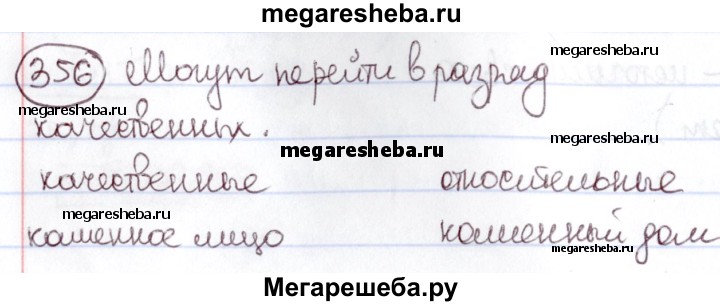 megaresheba.ru
356 Могут перейти в разряд
megaresheba.ru
megaresheba.ru
качественных.
megaresheba.ru
качественные относительные
megaresheba.ru
каменное лицо каменный дом
megaresheba.ru
Мегарешеба.ру